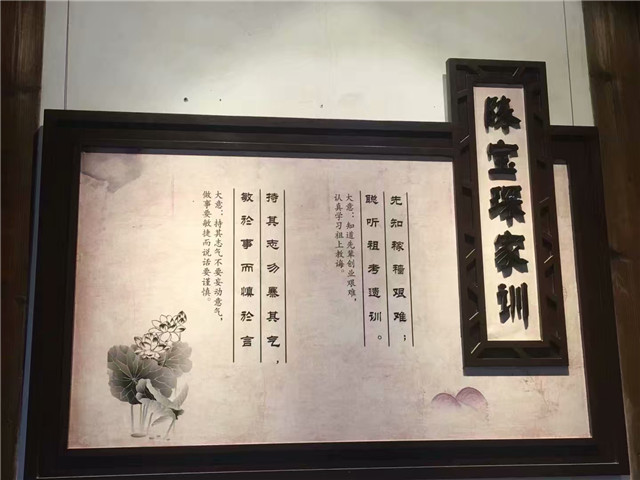 陈宝琛家训
先知稼穑艰难；
聪听祖考遗训。
大意：知道先辈创业艰难，
认真学习祖上教诲。
持其志勿暴其气，
敏於事而慎於言
大意：持其志气不要妄动意气，
做事要敏捷而说话要谨慎。